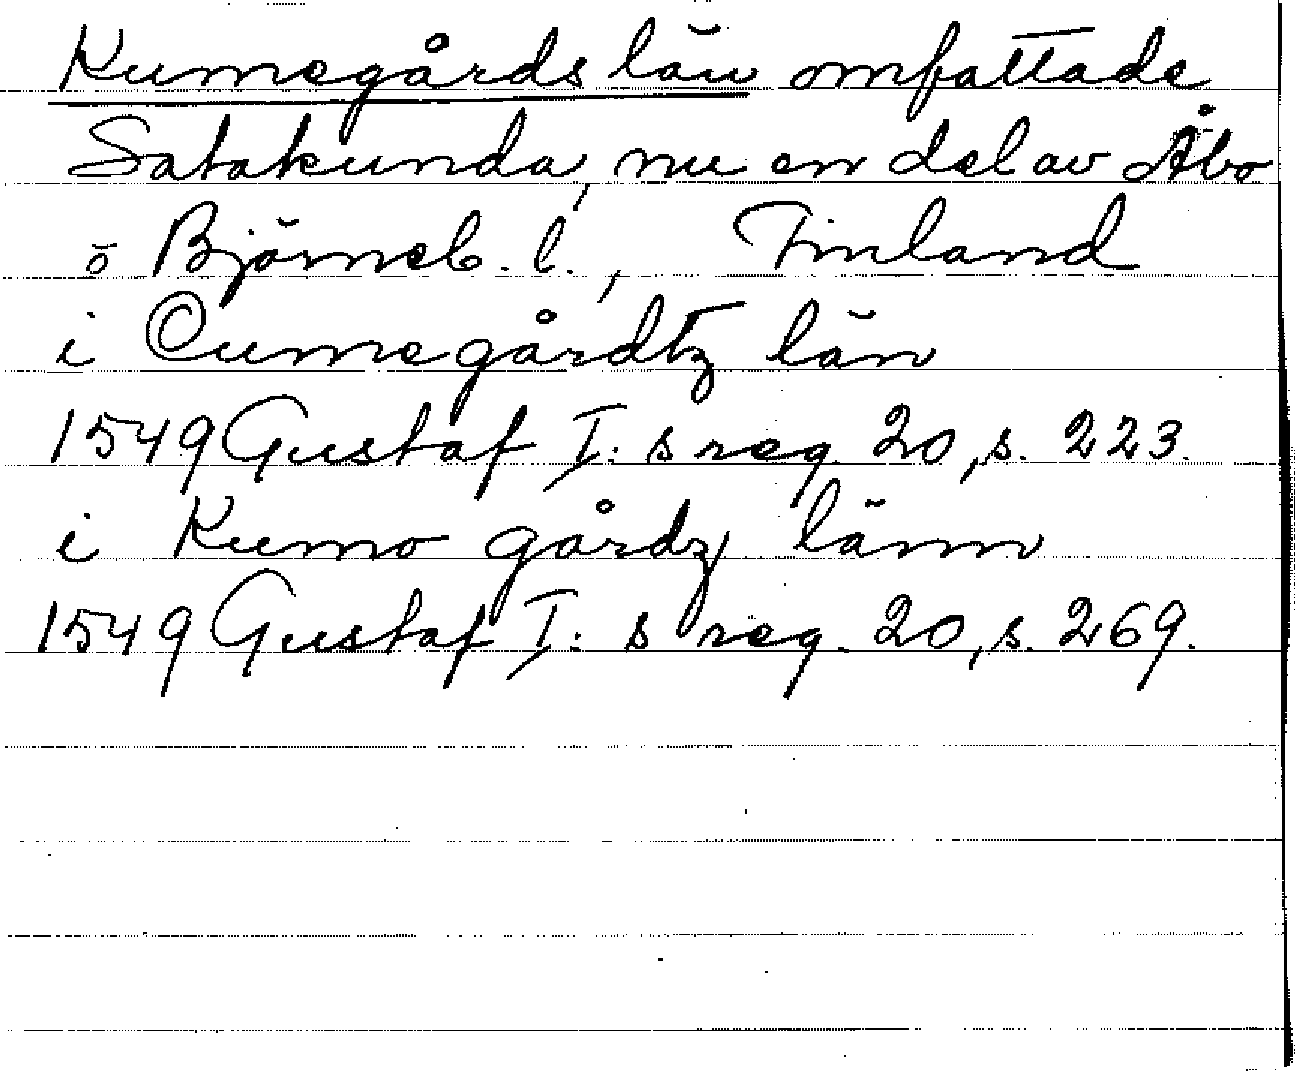 Kumegårds län omfattade
Satakunda, nu en del av Åbo
o Björneb. l., Finland
i Cumegårdtz län
1549 Gustaf I:s reg. 20, s. 223.
i Kumo gårdz länn
1549 Gustaf I:s reg. 20, s. 269.